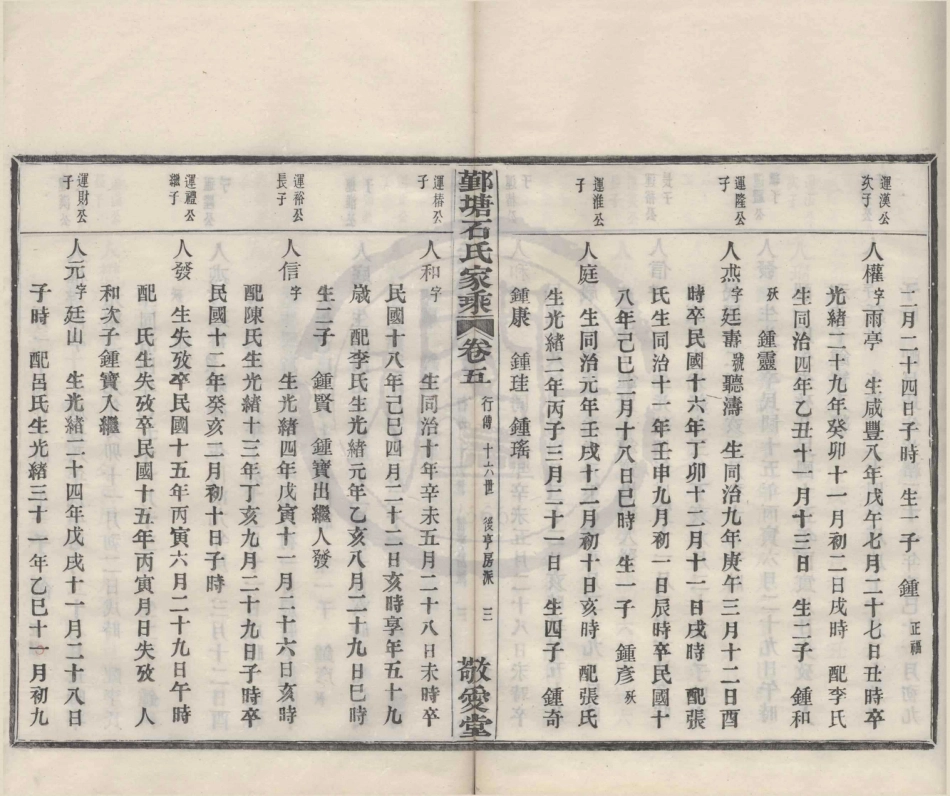 二月二十四日子時　生一子　鍾正福
運漢公次子
人權字雨亭　生咸豐八年戊午七月二十七日丑時卒
光緒二十九年癸卯十一月初二日戌時　配李氏
生同治四年乙丑十一月十三日　生二子　鍾和
殀　鍾靈
運隆公子
人燕字廷壽號聽濤　生同治九年庚午三月十二日酉
時卒民國十六年丁卯十二月十一日戌時　配張
氏生同治十一年壬申九月初一日辰時卒民國十
八年己巳三月十八日巳時　生一子　鍾彥殀
運淮公子
人庭　生同治元年壬戌十二月初十日亥時　配張氏
生光緒二年丙子三月二十一日　生四子　鍾奇
鍾康　鍾珪　鍾瑤
鄞塘石氏家乘　卷五　行傳　十六世　後亨房派　三　敬愛堂
運椿公子
人和字　生同治十年辛未五月二十八日未時卒
民國十八年己巳四月二十二日亥時享年五十九
歲　配李氏生光緒元年乙亥八月二十九日巳時
生二子　鍾賢　鍾寶出繼人發
運裕公長子
人信字　生光緒四年戊寅十一月二十六日亥時
配陳氏生光緒十三年丁亥九月二十九日子時卒
民國十二年癸亥二月初十日子時
運禮公繼子
人發　生失攷卒民國十五年丙寅六月二十九日午時
配　氏生失攷卒民國十五年丙寅月日失攷　人
和次子鍾寶入繼
運財公子
人元字廷山　生光緒二十四年戊戌十一月二十八日
子時　配呂氏生光緒三十一年乙巳十一月初九